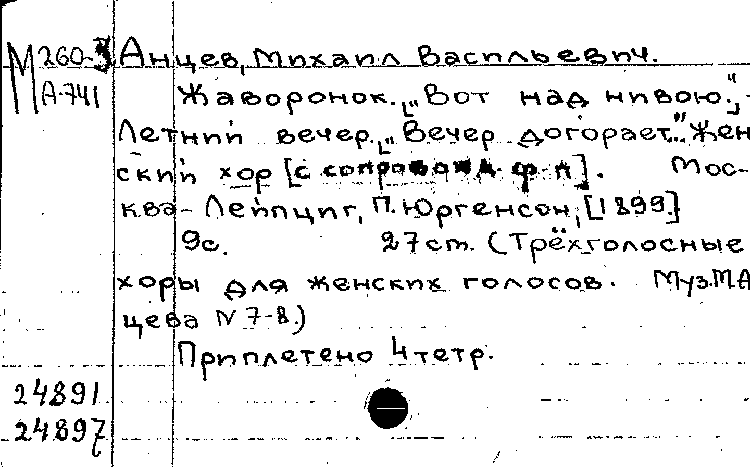 М260-3 Анцев, Михаил Васильевич.
А-741 Жаворонок. [„Вот над нивою.."] -
Летний вечер. [„Вечер догорает.." Жен
ский хор [с сопровожд. ф-п]. Мос-
ква - Лейпциг, П. Юргенсон, [1899]
9с. 27cm. (Трёхголосные
хоры для женских голосов. Муз. М. А
цева N 7-8.)
Приплетено 4 тетр.
24891
24897